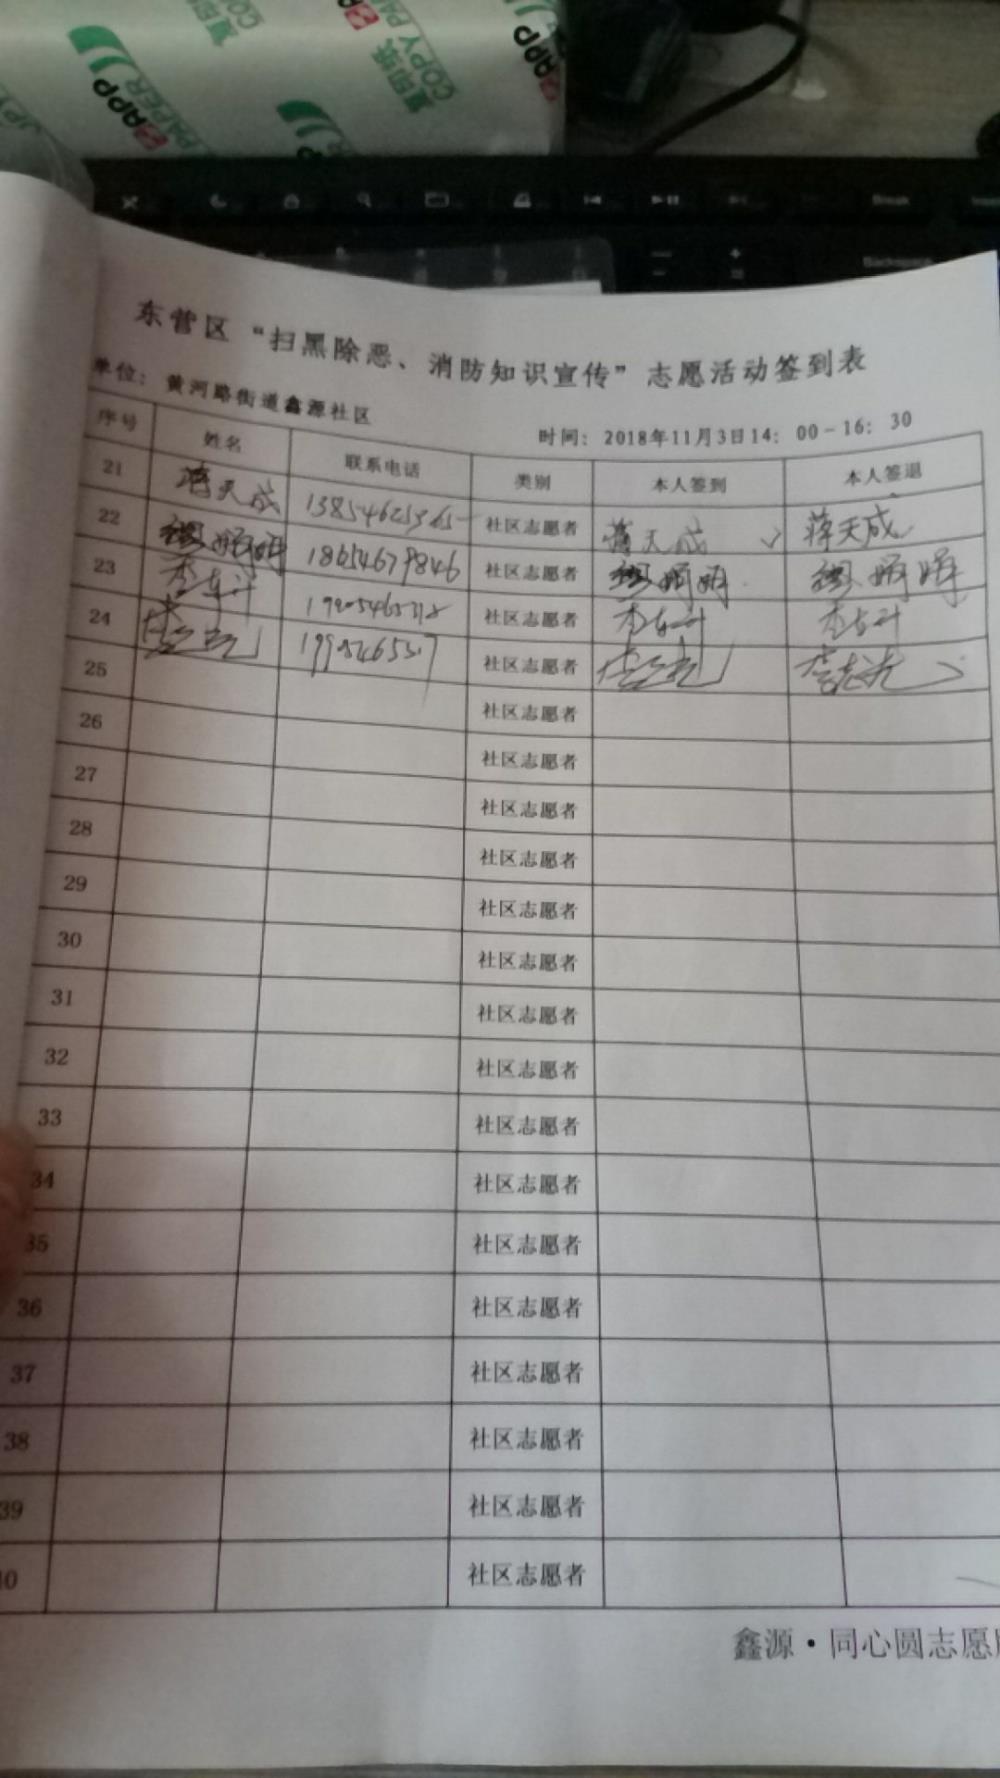 APP
复印纸
COPY PAPER
APP
COPY PAPER
Break
Backspace
东营区“扫黑除恶、消防知识宣传”志愿活动签到表
单位：黄河路街道鑫源社区
时间：2018年11月3日14：00-16：30
序号 姓名 联系电话 类别 本人签到 本人签退
21 蒋天成 社区志愿者 蒋天成 蒋天成
22 18654679846 社区志愿者
23 社区志愿者
24 社区志愿者
25 社区志愿者
26 社区志愿者
27 社区志愿者
28 社区志愿者
29 社区志愿者
30 社区志愿者
31 社区志愿者
32 社区志愿者
33 社区志愿者
34 社区志愿者
35 社区志愿者
36 社区志愿者
37 社区志愿者
38 社区志愿者
39 社区志愿者
40 社区志愿者
鑫源·同心圆志愿